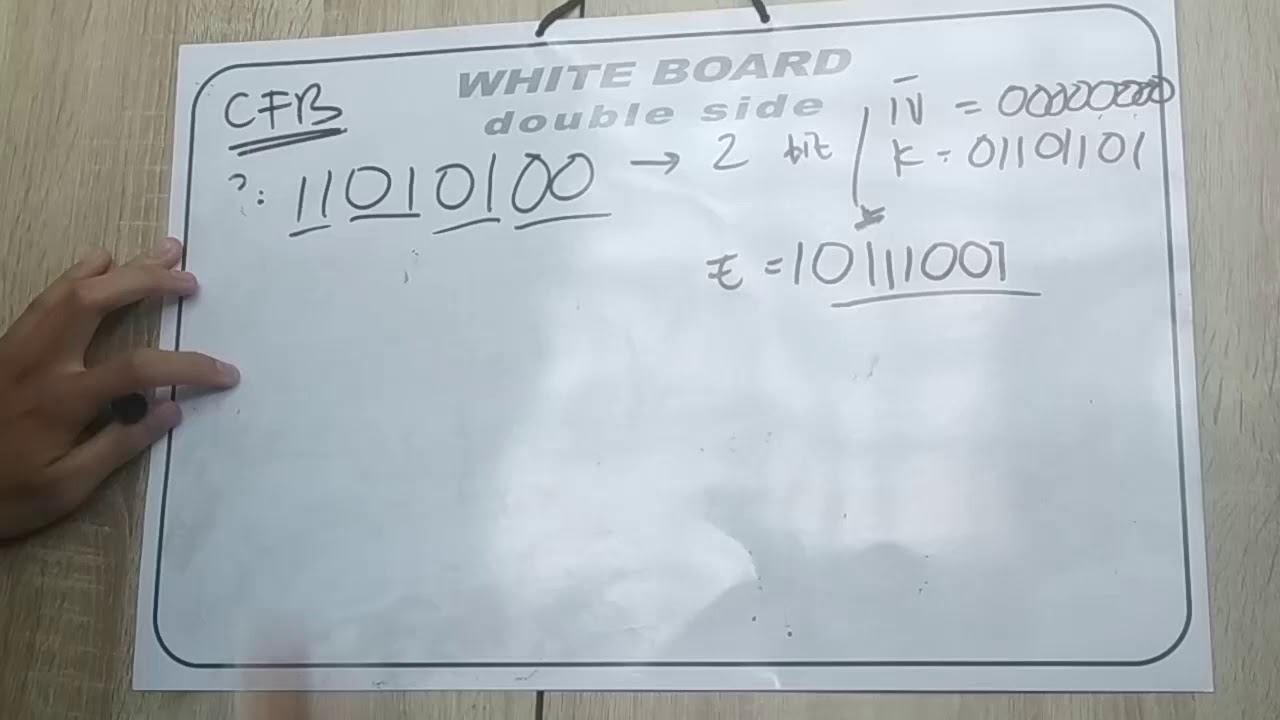 WHITE BOARD
double side
CFB
IV = 00000000
K = 01101101
?: 11010100 → 2 bit
E = 10111001